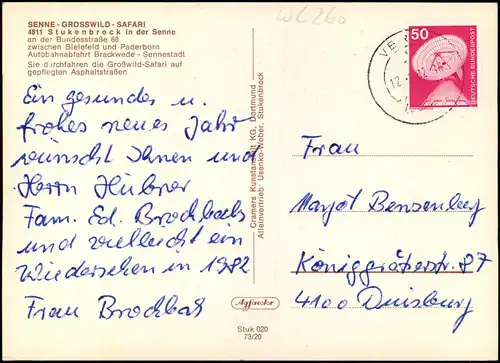 SENNE - GROSSWILD - SAFARI
4811 Stukenbrock in der Senne
an der Bundesstraße 68
zwischen Bielefeld und Paderborn
Autobahnabfahrt Brackwede - Sennestadt
Sie durchfahren die Großwild-Safari auf
gepflegten Asphaltstraßen
Ein gesundes u.
frohes neues Jahr
wünscht Ihnen und
Herrn Hübner
Fam. Ed. Brockbals
und vielleicht ein
Wiedersehen in 1982
Frau Brockbals
Cramers Kunstanstalt KG, Dortmund
Alleinvertrieb: Usenko-Weber, Stukenbrock
Agfacolor
Stuk 020
73/20
50
DEUTSCHE BUNDESPOST
Frau
Margot Bensenberg
Königgrätzerstr. 87
4100 Duisburg